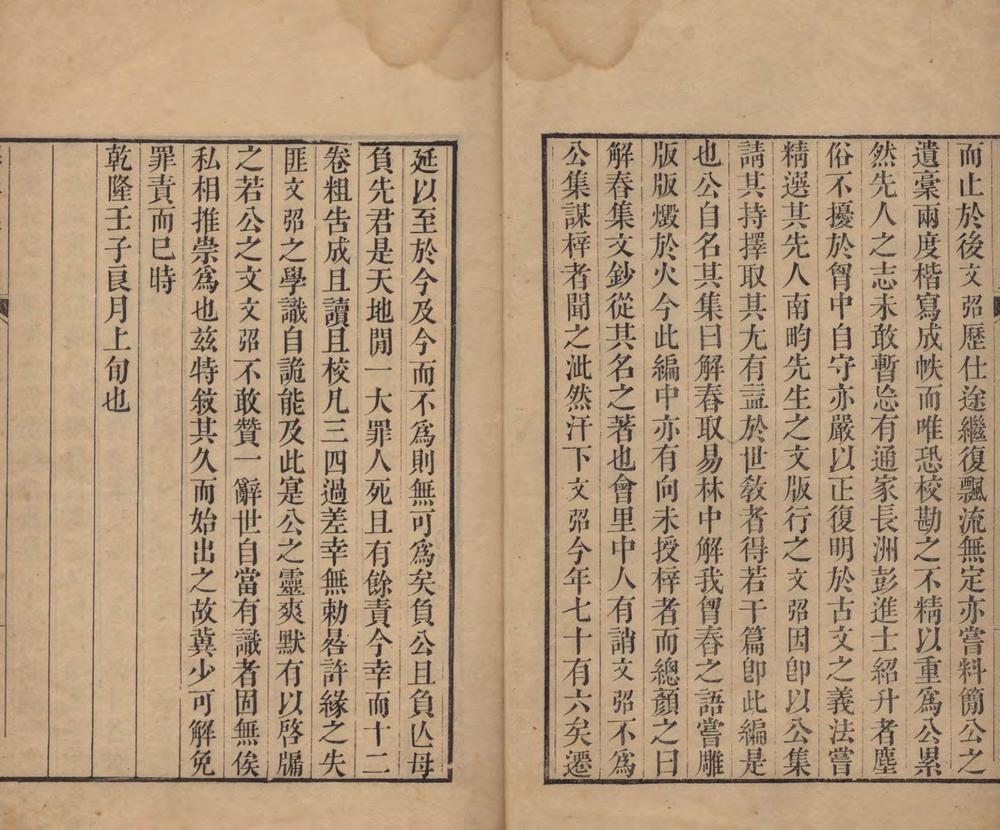 而止於後文弨歷仕途繼復飄流無定亦嘗料簡公之
遺稾兩度楷寫成帙而唯恐校勘之不精以重爲公累
然先人之志未敢暫忘有通家長洲彭進士紹升者塵
俗不擾於胷中自守亦嚴以正復明於古文之義法嘗
精選其先人南畇先生之文版行之文弨因卽以公集
請其持擇取其尤有益於世敎者得若干篇卽此編是
也公自名其集曰解舂取易林中解我胷舂之語嘗雕
版版燬於火今此編中亦有向未授梓者而總顏之曰
解舂集文鈔從其名之著也會里中人有誚文弨不爲
公集謀梓者聞之泚然汗下文弨今年七十有六矣遷
延以至於今及今而不爲則無可爲矣負公且負亾母
負先君是天地閒一大罪人死且有餘責今幸而十二
卷粗告成且讀且校凡三四過差幸無勅晷許緣之失
匪文弨之學識自詭能及此寔公之靈爽默有以啓牖
之若公之文文弨不敢贊一辭世自當有識者固無俟
私相推崇爲也茲特敘其久而始出之故冀少可解免
罪責而已時
乾隆壬子良月上旬也